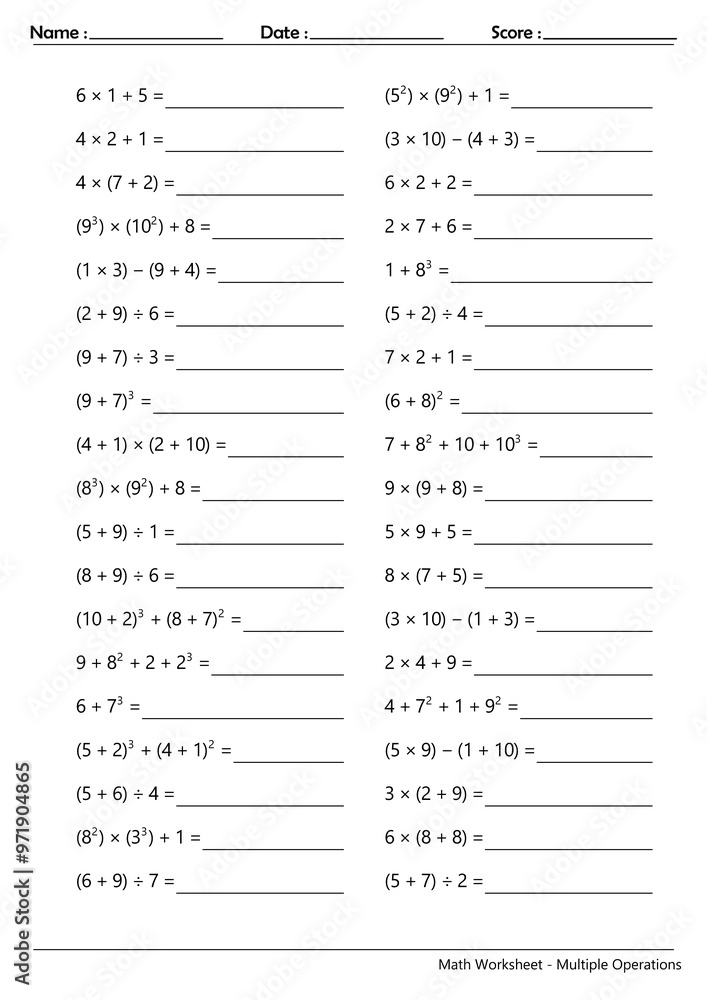 Name : Date : Score :
6 × 1 + 5 =
4 × 2 + 1 =
4 × (7 + 2) =
(9³) × (10²) + 8 =
(1 × 3) – (9 + 4) =
(2 + 9) ÷ 6 =
(9 + 7) ÷ 3 =
(9 + 7)³ =
(4 + 1) × (2 + 10) =
(8³) × (9²) + 8 =
(5 + 9) ÷ 1 =
(8 + 9) ÷ 6 =
(10 + 2)³ + (8 + 7)² =
9 + 8² + 2 + 2³ =
6 + 7³ =
(5 + 2)³ + (4 + 1)² =
(5 + 6) ÷ 4 =
(8²) × (3³) + 1 =
(6 + 9) ÷ 7 =
(5²) × (9²) + 1 =
(3 × 10) – (4 + 3) =
6 × 2 + 2 =
2 × 7 + 6 =
1 + 8³ =
(5 + 2) ÷ 4 =
7 × 2 + 1 =
(6 + 8)² =
7 + 8² + 10 + 10³ =
9 × (9 + 8) =
5 × 9 + 5 =
8 × (7 + 5) =
(3 × 10) – (1 + 3) =
2 × 4 + 9 =
4 + 7² + 1 + 9² =
(5 × 9) – (1 + 10) =
3 × (2 + 9) =
6 × (8 + 8) =
(5 + 7) ÷ 2 =
Math Worksheet - Multiple Operations
Adobe Stock | #971904865